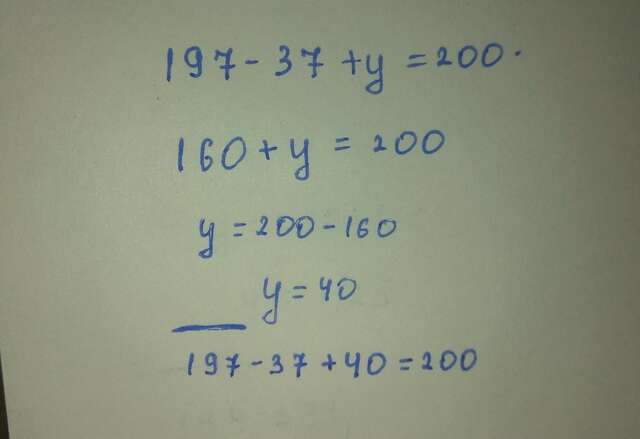 197-37+y=200.
160+y=200
y=200-160
y=40
197-37+40=200